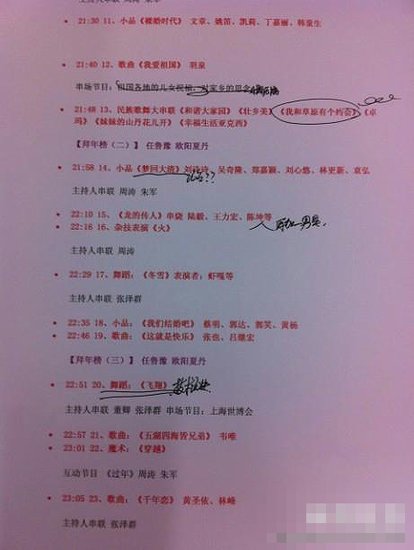 21:30 11、小品《裸婚时代》 文章、姚笛、凯莉、丁嘉丽、韩童生
21:40 12、歌曲《我爱祖国》 羽泉
串场节目：祖国各地的儿女祝福，对家乡的思念
21:48 13、民族歌舞大串联《和谐大家园》《壮乡美》《我和草原有个约会》《卓
玛》《妹妹的山丹花儿开》《幸福生活亚克西》
【拜年榜（二）】 任鲁豫 欧阳夏丹
21:58 14、小品《梦回大清》刘诗诗、吴奇隆、郑嘉颖、刘心悠、林更新、袁弘
主持人串联 周涛 朱军
22:10 15、《龙的传人》串烧 陆毅、王力宏、陈坤等
22:16 16、杂技表演《火》
主持人串联 周涛
22:29 17、舞蹈：《冬雪》表演者：虾嘎等
主持人串联 张泽群
22:35 18、小品：《我们结婚吧》 蔡明、郭达、郭笑、黄杨
22:46 19、歌曲：《这就是快乐》 张也、吕继宏
【拜年榜（三）】 任鲁豫 欧阳夏丹
22:51 20、舞蹈：《飞翔》
主持人串联 董卿 张泽群 串场节目：上海世博会
22:57 21、歌曲：《五湖四海皆兄弟》 韦唯
23:01 22、魔术：《穿越》
互动节目《过年》周涛 朱军
23:05 23、歌曲：《千年恋》 黄圣依、林峰
主持人串联 张泽群